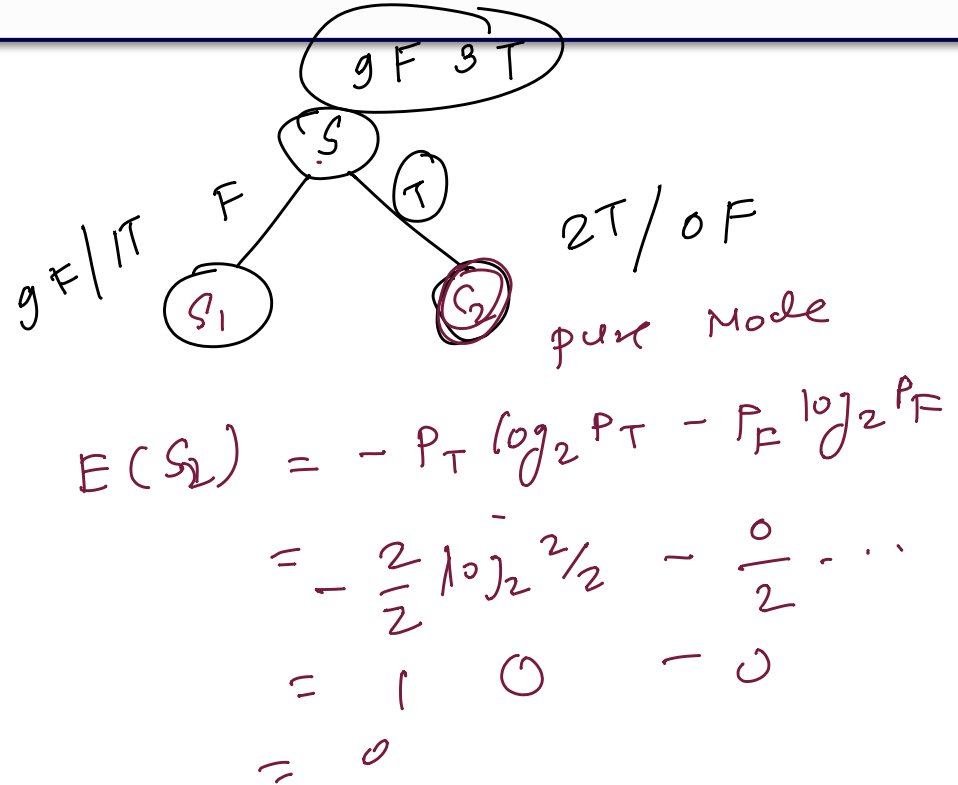 9F 3T
S
F T
9F/1T 2T/0F
S1 S2
pure Mode
E(S2) = - PT log2 PT - PF log2 PF
= - 2/2 log2 2/2 - 0/2 ...
= 1 0 - 0
= 0